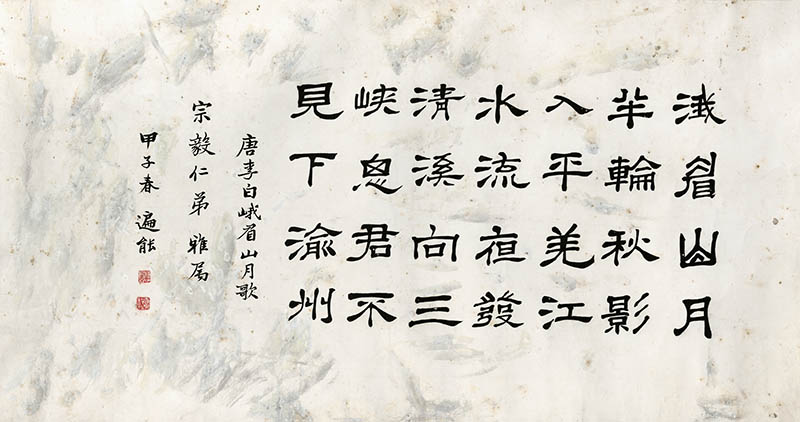 涐眉山月
半輪秋影
入平羌江
水流夜發
清溪向三
峡思君不
見下渝州
唐李白峨眉山月歌
宗毅仁弟 雅属
甲子春 遍能